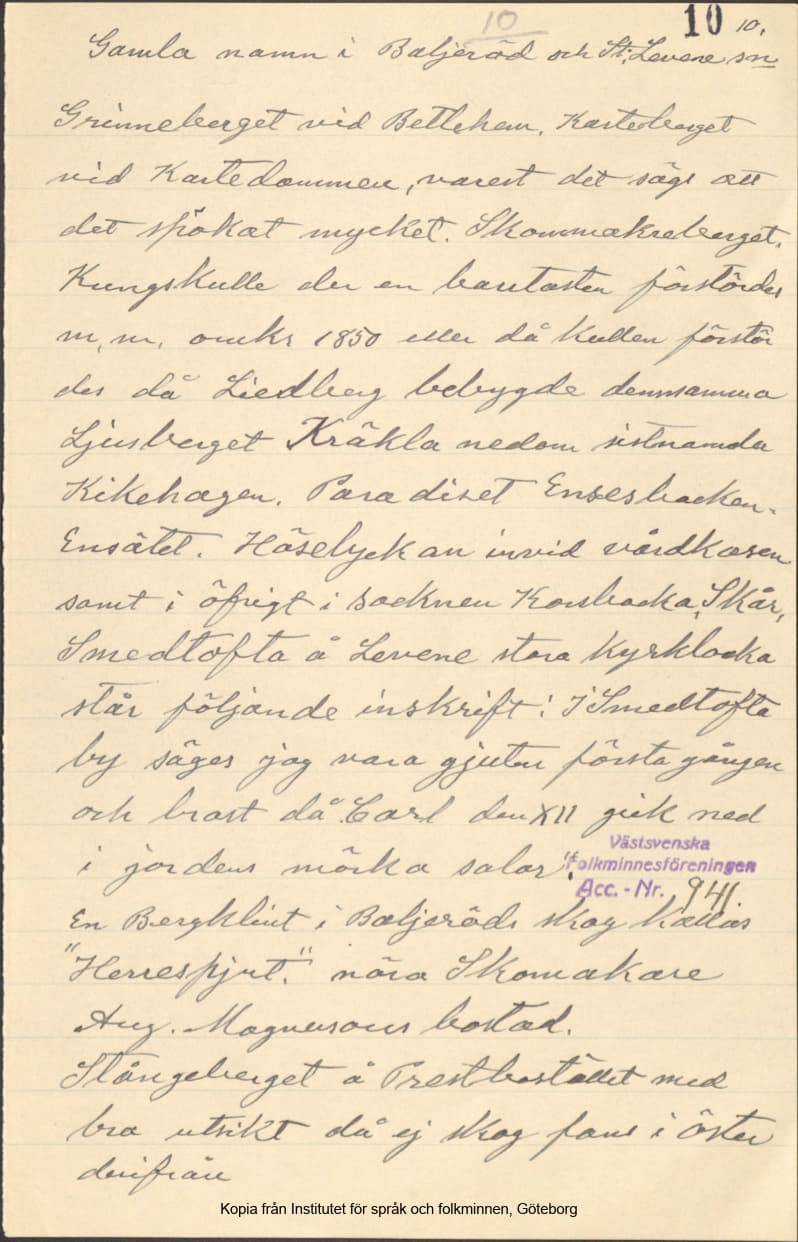 10 10 10.
Gamla namn i Baljeröd och St. Levene sn
Grinneberget vid Betlehem, Karteberget
vid Kartedammen, varest det sägs att
det spökat mycket. Skommakreberget.
Kungskulle der en bautasten förstördes
m, m, omkr 1850 eller då kullen förstör
des då Liedberg bebygde densamma
Ljusberget Kräkla nedom sistnämda
Kikehagen. Paradiset Ensesbacken.
Ensätet. Håselyckan invid vårdkasen
samt i öfrigt i socknen Korsbacka, Skår,
Smedtofta å Levene stora Kyrklocka
står följande inskrift: "I Smedtofta
by säges jag vara gjuten första gången
och brast då Carl den XII gick ned
i jordens mörka salar".
Västsvenska
Folkminnesföreningen
Acc. - Nr. 941.
En Bergklint i Baljeröds skog kallas
"Herrespjut." nära Skomakare
Aug. Magnusons bostad.
Stångeberget å Prestbostället med
bra utsikt då ej skog fans i öster
derifrån
Kopia från Institutet för språk och folkminnen, Göteborg